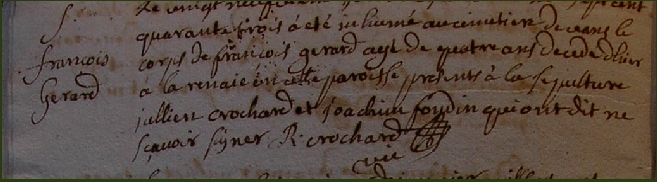 S.
françois
Gerard
Le vingt
quarante trois a été inhumé au cimetiere de ceans le
corps de françois gerard agé de quatre ans decedé d'hier
a la renaie en cette paroisse presents a la sepulture
jullien crochard et joachim foudin qui ont dit ne
sçavoir signer R. crochard
vic